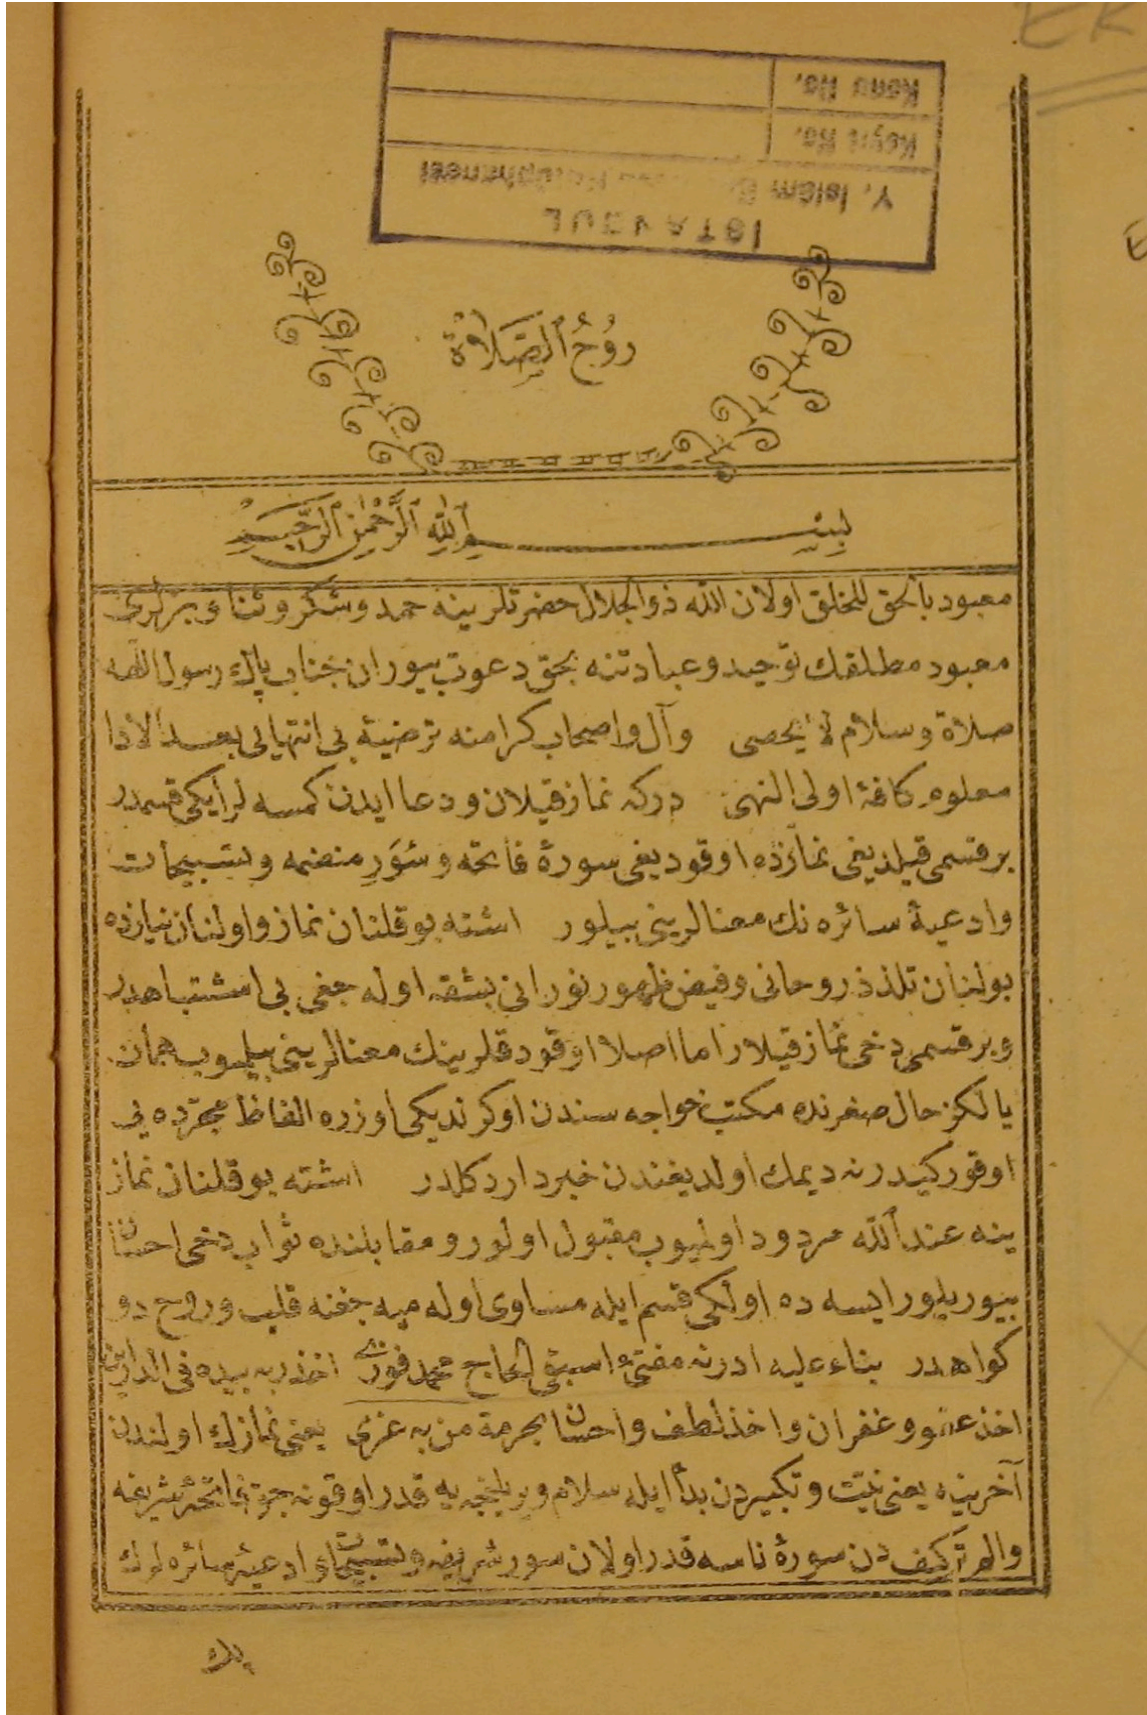 Konu No.
Kayıt No.
Y. İslâm Kütüphanesi
İSTANBUL
رُوحُ ٱلصَّلَاةِ
بِسْمِ ٱللّٰهِ ٱلرَّحْمٰنِ ٱلرَّحِيمِ
معبود بالحق للخلق اولان الله ذوالجلال حضرتلرينه حمد و شكر و ثنا و بزلرى
معبود مطلقك توحيد و عبادتنه بحق دعوت بيوران جناب پاك رسول اللهه
صلاة و سلام لا يحصى و آل و اصحاب كرامنه ترضيۀ بى انتهايى بعد الادا
معلوم كافۀ اولى النهى دركه نماز قيلان و دعا ايدن كمسه لر ايكى قسمدر
بر قسمى قيلديغى نمازده اوقوديغى سورۀ فاتحه و سُوَرِ منضمه و تسبيحات
و ادعيۀ سائره نك معنالرينى بيلور اشته بو قلنان نماز و اولنان نيازده
بولنان تلذذ روحانى و فيض ظهور نورانى بشقه اوله جغى بى اشتباهدر
و بر قسمى دخى نماز قيلار اما اصلا اوقودقلرينك معنالرينى بيلميوب همان
يالكز حال صغرنده مكتب خواجه سندن اوكرنديكى اوزره الفاظ مجرّده يى
اوقور كيدر نه ديمك اولديغندن خبردار دكلدر اشته بو قلنان نماز
ينه عند الله مردود اولميوب مقبول اولور و مقابلنده ثواب دخى احسان
بيوريلور ايسه ده اولكى قسم ايله مساوى اوله ميه جغنه قلب و روح دو
كواهدر بناء عليه ادرنه مفتئ اسبقى الحاج محمد فوزى اخذ ربه بيده فى الدارين
اخذ عفو و غفران و اخذ لطف و احسان بحرمة من به عزى يعنى نمازك اولندن
آخرينه يعنى نيت و تكبيردن بدأ ايله سلام ويريلنجيه قدر اوقونه جق فاتحۀ شريفه
و الم تركيف دن سورۀ ناسه قدر اولان سور شريفه و تسبيحات و ادعيۀ سائره لرك
پك